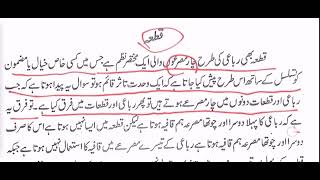 قطعہ
قطعہ بھی رباعی کی طرح چار مصرعوں والی ایک مختصر نظم ہے جس میں کسی خاص خیال یا مضمون
کو تسلسل کے ساتھ اس طرح پیش کیا جاتا ہے کہ ایک وحدت تاثر قائم ہو تو سوال یہ پیدا ہوتا ہے کہ جب
رباعی اور قطعات دونوں میں چار مصرعے ہوتے ہیں تو پھر رباعی اور قطعات میں فرق کیا ہے۔ تو فرق یہ
ہے کہ رباعی کا پہلا دوسرا اور چوتھا مصرعہ ہم قافیہ ہوتا ہے لیکن قطعہ میں ایسا نہیں ہوتا ہے اس کا صرف
دوسرا اور چوتھا مصرعہ ہم قافیہ ہوتا ہے رباعی کے تیسرے مصرعے میں قافیہ کا استعمال نہیں ہوتا ہے جبکہ